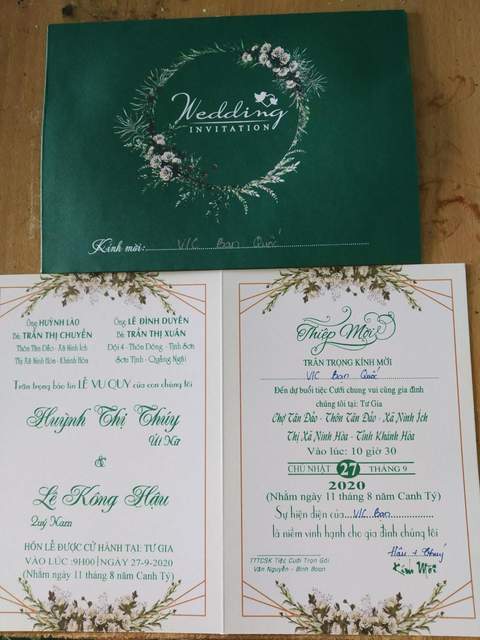 Wedding
INVITATION
Kính mời: V/C Ban Quốc
Ông HUỲNH LÀO
Bà TRẦN THỊ CHUYÊN
Thôn Tân Đảo - Xã Ninh Ích
Thị Xã Ninh Hòa - Khánh Hòa
Ông LÊ ĐÌNH DUYÊN
Bà TRẦN THỊ XUÂN
Đội 4 - Thôn Đông - Tịnh Sơn
Sơn Tịnh - Quảng Ngãi
Trân trọng báo tin LỄ VU QUY của con chúng tôi
Huỳnh Thị Thúy
Út Nữ
&
Lê Công Hậu
Quý Nam
HÔN LỄ ĐƯỢC CỬ HÀNH TẠI: TƯ GIA
VÀO LÚC :9H00 | NGÀY 27-9-2020
(Nhằm ngày 11 tháng 8 năm Canh Tý)
Thiệp Mời
TRÂN TRỌNG KÍNH MỜI
V/C Ban Quốc
Đến dự buổi tiệc Cưới chung vui cùng gia đình
chúng tôi tại: Tư Gia
Chợ Tân Đảo - Thôn Tân Đảo - Xã Ninh Ích
Thị Xã Ninh Hòa - Tỉnh Khánh Hòa
Vào lúc: 10 giờ 30
CHỦ NHẬT 27 THÁNG 9
2020
(Nhằm ngày 11 tháng 8 năm Canh Tý)
Sự hiện diện của V/C Ban
là niềm vinh hạnh cho gia đình chúng tôi
Hậu + Thuý
Kính Mời
TTTCSK Tiệc Cưới Trọn Gói
Văn Nguyên - Bình Boon